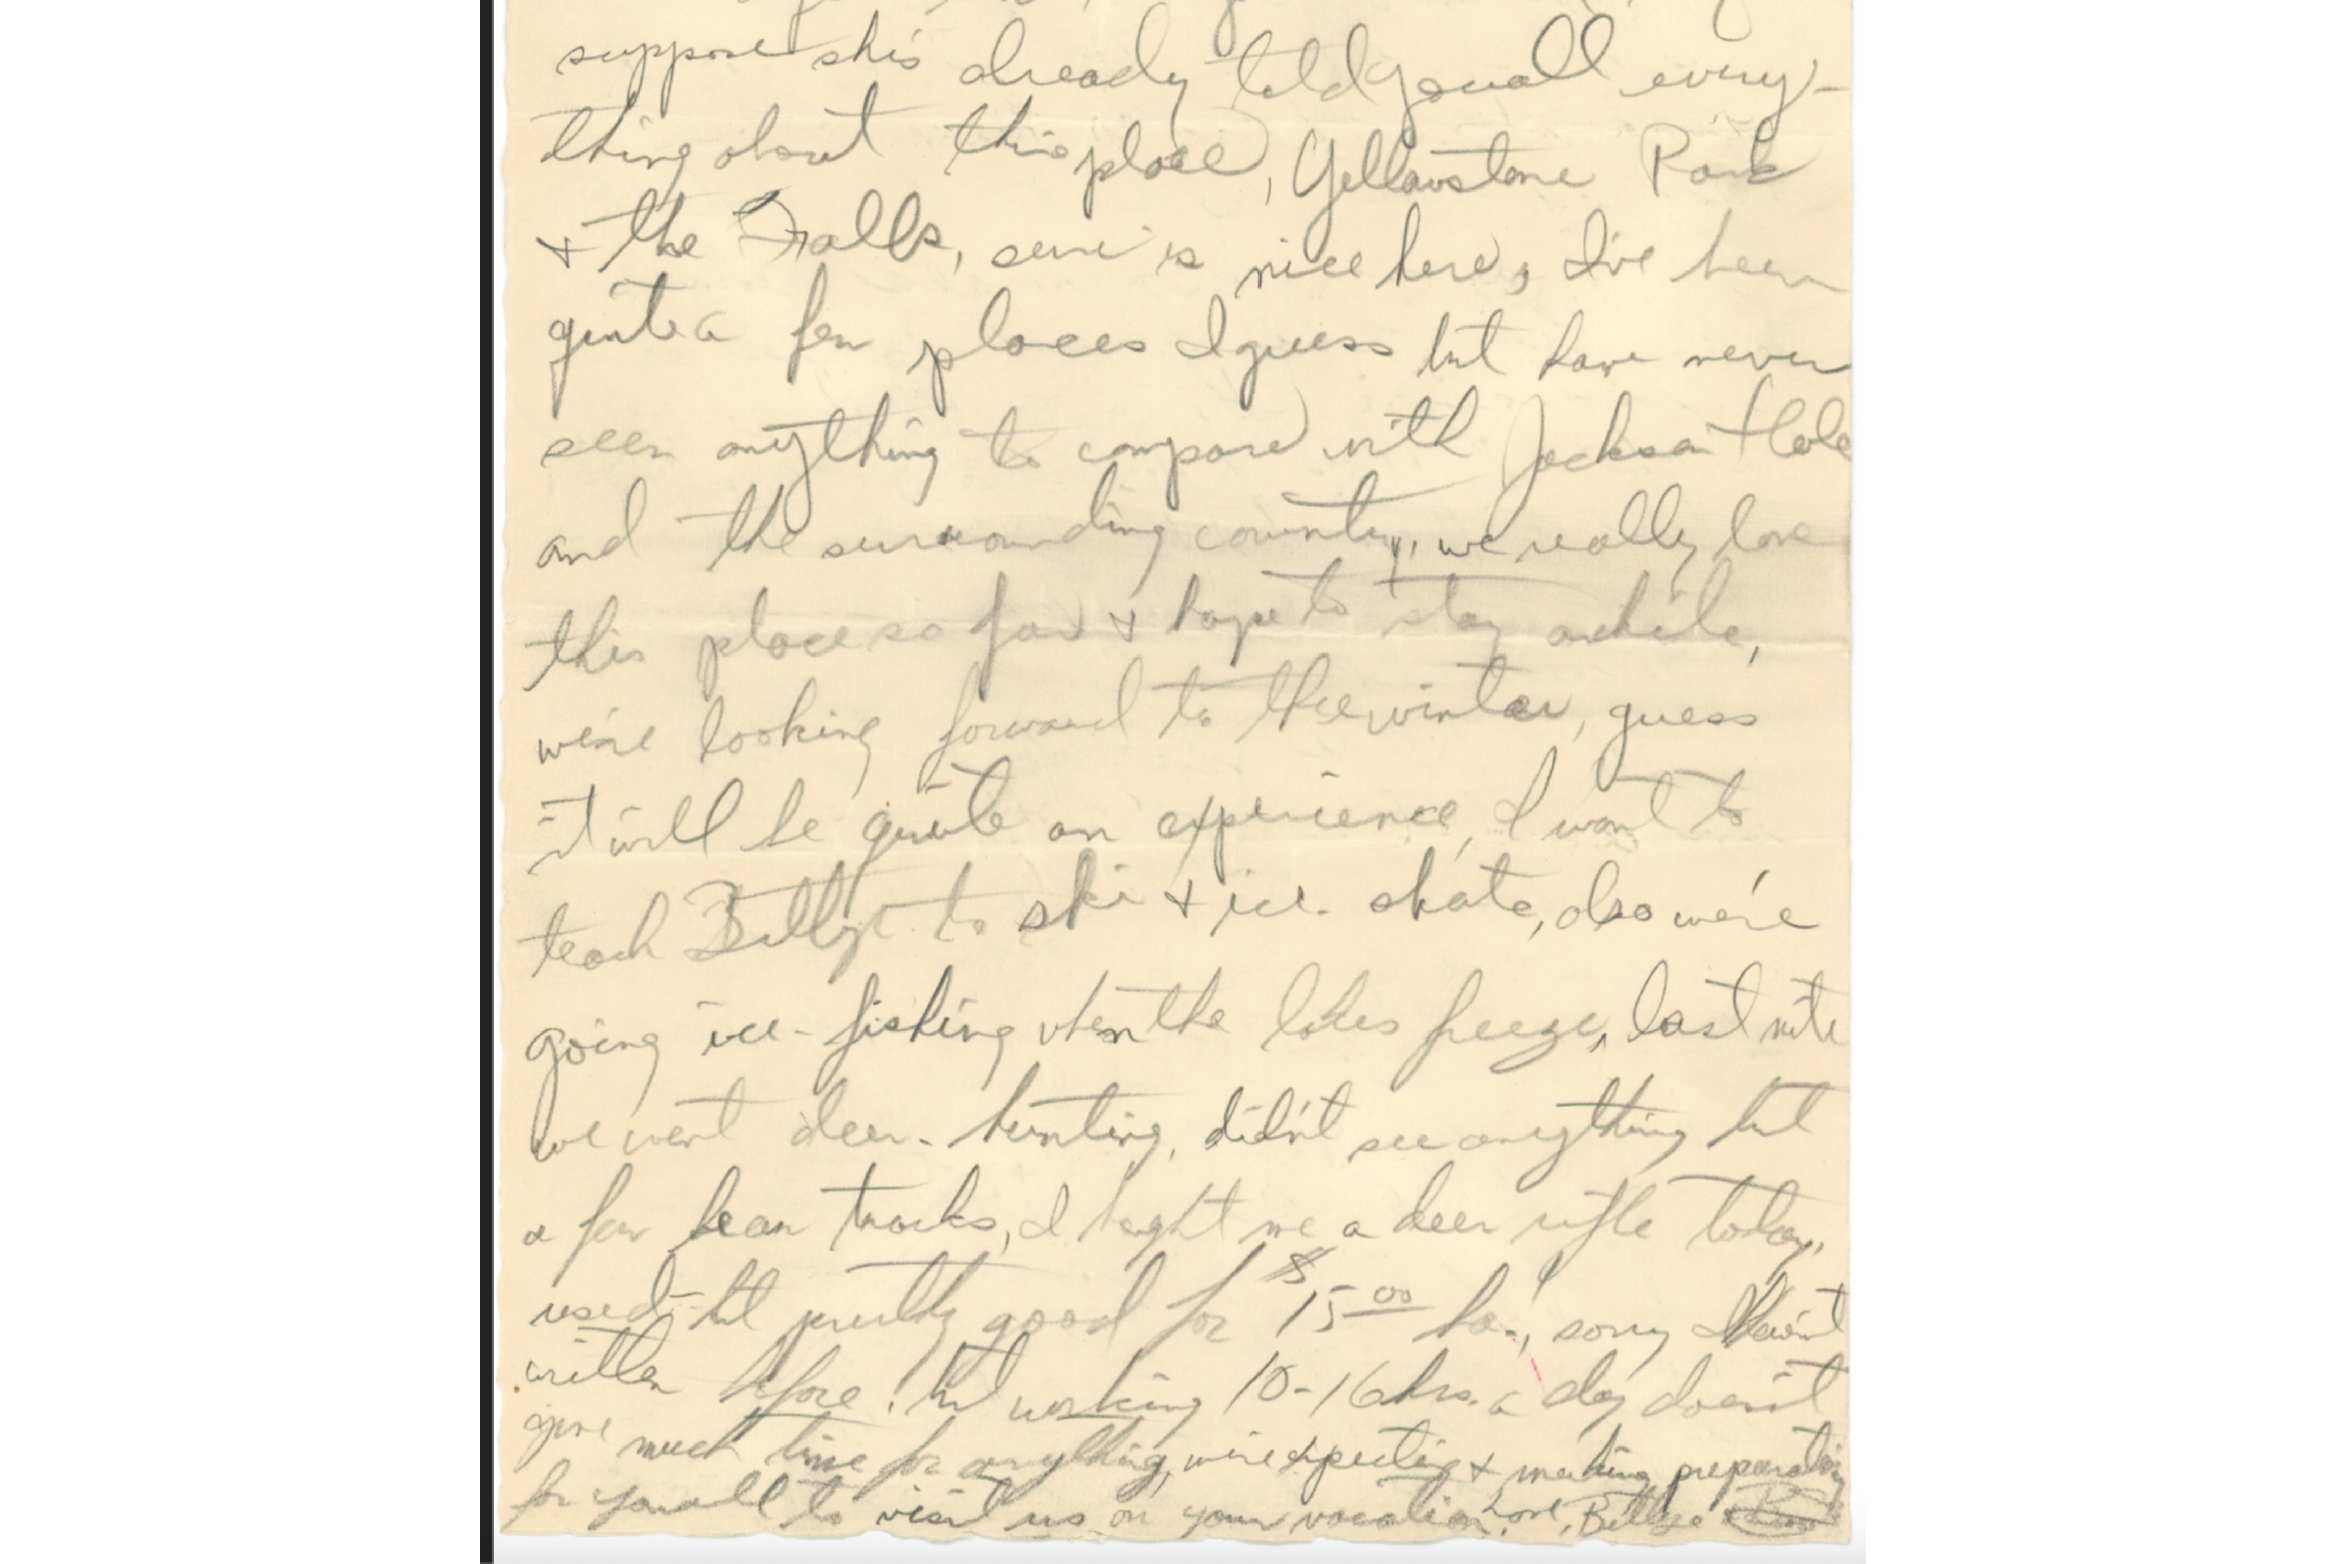 suppose she's already told you all every-
thing about this place, Yellowstone Park
& the Falls, sure is nice here, I've been
quite a few places I guess but have never
seen anything to compare with Jackson Hole
and the surrounding country, we really love
this place so far & hope to stay awhile,
we're looking forward to the winter, guess
it will be quite an experience, I want to
teach Billye to ski & ice-skate, also we're
going ice-fishing when the lakes freeze, last nite
we went deer-hunting, didn't see anything but
a few bear tracks, I bught me a deer rifle today,
used-but pretty good for $15.00 ha-, sorry I haven't
written before, but working 10-16 hrs. a day doesn't
give much time for anything, we're expecting & making preparations
for you all to visit us on your vacation. Love, Billye &